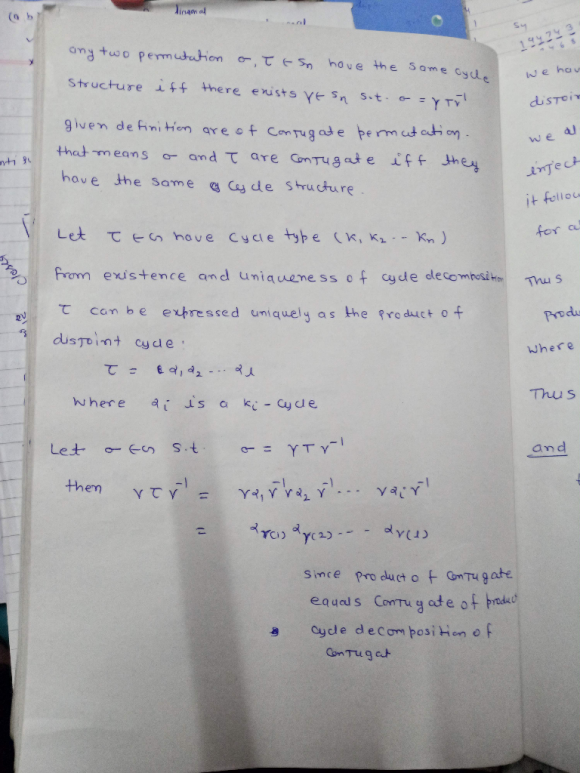 any two permutation σ, τ ∈ Sn have the same cycle
structure iff there exists γ ∈ Sn s.t. σ = γ τ γ⁻¹
given definition are of conjugate permutation.
that means σ and τ are conjugate iff they
have the same cycle structure.
Let τ ∈ G have cycle type (K₁ K₂ -- Kn)
from existence and uniqueness of cycle decomposition
τ can be expressed uniquely as the product of
disjoint cycle.
τ = α₁ α₂ ... αl
where αi is a Ki - cycle
Let σ ∈ G s.t. σ = γ τ γ⁻¹
then γ τ γ⁻¹ = γα₁ γ⁻¹ γα₂ γ⁻¹ ... γαi γ⁻¹
= αγ(1) αγ(2) --- αγ(l)
since product of conjugate
equals conjugate of product
cycle decomposition of
conjugat
we hav
disjoin
we al
inject
it follow
for a
Thus
produ
where
Thus
and